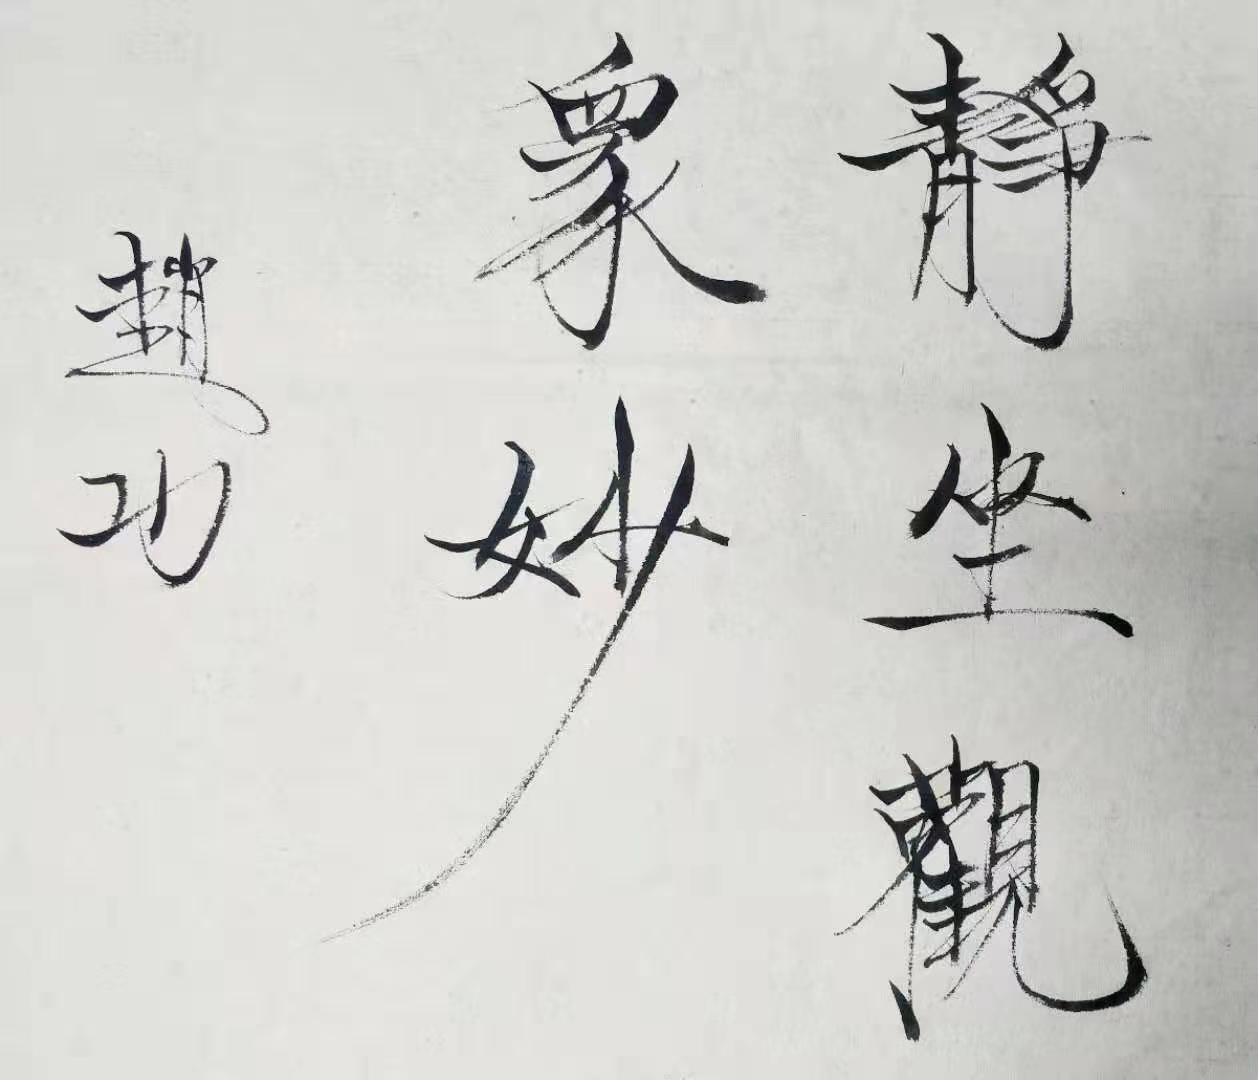 靜坐觀
眾妙
趙功